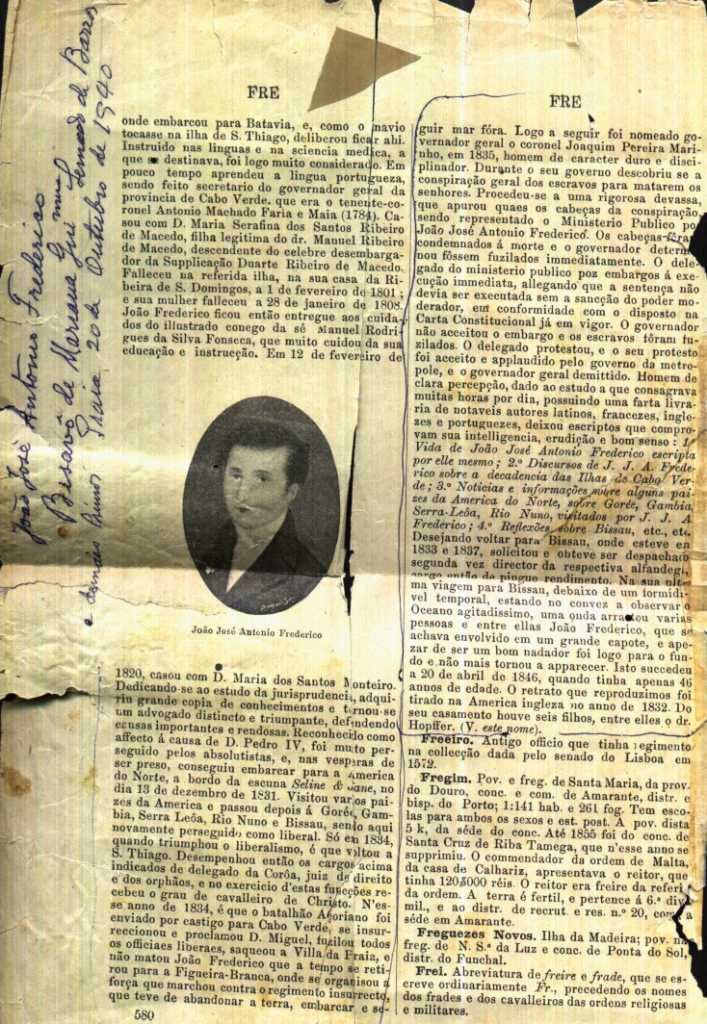 João José Antonio Frederico
Bisavô de Mariana
de Barros
Praia 20 de Outubro de 1940
FRE
onde embarcou para Batavia, e, como o navio
tocasse na ilha de S. Thiago, deliberou ficar ahi.
Instruido nas linguas e na sciencia medica, a
que se destinava, foi logo muito considerado. Em
pouco tempo aprendeu a lingua portugueza,
sendo feito secretario do governador geral da
provincia de Cabo Verde. que era o tenente-co-
ronel Antonio Machado Faria e Maia (1784). Ca-
sou com D. Maria Serafina dos Santos Ribeiro
de Macedo, filha legitima do dr. Manuel Ribeiro
de Macedo, descendente do celebre desembarga-
dor da Supplicação Duarte Ribeiro de Macedo.
Falleceu na referida ilha, na sua casa da Ri-
beira de S. Domingos, a 1 de fevereiro de 1801;
e sua mulher falleceu a 28 de janeiro de 1808.
João Frederico ficou então entregue aos cuida-
dos do illustrado conego da sé Manuel Rodri-
gues da Silva Fonseca, que muito cuidou da sua
educação e instrucção. Em 12 de fevereiro de
João José Antonio Frederico
1820, casou com D. Maria dos Santos Monteiro.
Dedicando-se ao estudo da jurisprudencia, adqui-
riu grande copia de conhecimentos e tornou-se
um advogado distincto e triumpante, defendendo
causas importantes e rendosas. Reconhecido como
affecto á causa de D. Pedro IV, foi muito per-
seguido pelos absolutistas, e, nas vesperas de
ser preso, conseguiu embarcar para a America
do Norte, a bordo da escuna Seline & Jane, no
dia 13 de dezembro de 1831. Visitou varios pai-
zes da America e passou depois á Gorée, Gam-
bia, Serra Leôa, Rio Nuno e Bissau, sendo aqui
novamente perseguido como liberal. Só em 1834,
quando triumphou o liberalismo, é que voltou a
S. Thiago. Desempenhou então os cargos acima
indicados de delegado da Corôa, juiz de direito
e dos orphãos, e no exercicio d'estas funcções re-
cebeu o grau de cavalleiro de Christo. N'es-
se anno de 1834, é que o batalhão Açoriano foi
enviado por castigo para Cabo Verde, se insur-
reccionou e proclamou D. Miguel, fuzilou todos
os officiaes liberaes, saqueou a Villa da Praia, e
não matou João Frederico que a tempo se reti-
rou para a Figueira-Branca, onde se organisou a
força que marchou contra o regimento insurrecto,
que teve de abandonar a terra, embarcar e se-
580
FRE
guir mar fóra. Logo a seguir foi nomeado go-
vernador geral o coronel Joaquim Pereira Mari-
nho, em 1835, homem de caracter duro e disci-
plinador. Durante o seu governo descobriu se a
conspiração geral dos escravos para matarem os
senhores. Procedeu-se a uma rigorosa devassa,
que apurou quaes os cabeças da conspiração,
sendo representado o Ministerio Publico po
João José Antonio Frederico. Os cabeças foram
condemnados á morte e o governador determi-
nou fôssem fuzilados immediatamente. O dele-
gado do ministerio publico poz embargos á exe-
cução immediata, allegando que a sentença não
devia ser executada sem a sancção do poder mo-
derador, em conformidade com o disposto na
Carta Constitucional já em vigor. O governador
não acceitou o embargo e os escravos fôram fu-
zilados. O delegado protestou, e o seu protesto
foi acceito e applaudido pelo governo da metro-
pole, e o governador geral demittido. Homem de
clara percepção, dado ao estudo a que consagrava
muitas horas por dia, possuindo uma farta livra-
ria de notaveis autores latinos, francezes, ingle-
zes e portuguezes, deixou escriptos que compro-
vam sua intelligencia, erudição e bom senso: 1.º
Vida de João José Antonio Frederico escripta
por elle mesmo; 2.º Discursos de J. J. A. Frede-
rico sobre a decadencia das Ilhas de Cabo Ver-
de; 3.º Noticias e informações sobre alguns pai-
zes da America do Norte, sobre Gorée, Gambia,
Serra-Leôa, Rio Nuno, visitados por J. J. A
Frederico; 4.º Reflexões sobre Bissau, etc., etc.
Desejando voltar para Bissau, onde esteve en
1833 e 1837, solicitou e obteve ser despachado
segunda vez director da respectiva alfandega,
cargo então de pingue rendimento. Na sua ulti-
ma viagem para Bissau, debaixo de um formida-
vel temporal, estando no convez a observar o
Oceano agitadissimo, uma onda arrastou varias
pessoas e entre ellas João Frederico, que se
achava envolvido em um grande capote, e ape-
zar de ser um bom nadador foi logo para o fun-
do e não mais tornou a apparecer. Isto succedeu
a 20 de abril de 1846, quando tinha apenas 46
annos de edade. O retrato que reproduzimos foi
tirado na America ingleza no anno de 1832. Do
seu casamento houve seis filhos, entre elles o dr.
Hopffer. (V. este nome).
Freeiro. Antigo officio que tinha regimento
na collecção dada pelo senado de Lisboa em
1572.
Fregim. Pov. e freg. de Santa Maria, da prov.
do Douro, conc. e com. de Amarante, distr. e
bisp. do Porto; 1:141 hab. e 261 fog. Tem esco-
las para ambos os sexos e est. post. A pov. dista
5 k, da séde do conc. Até 1855 foi do conc. de
Santa Cruz de Riba Tamega, que n'esse anno se
supprimiu. O commendador da ordem de Malta,
da casa de Calhariz, apresentava o reitor, que
tinha 120$000 réis. O reitor era freire da referi-
da ordem. A terra é fertil, e pertence á 6.ª div
mil., e ao distr. de recrut. e res. n.º 20, com a
séde em Amarante.
Freguezes Novos. Ilha da Madeira; pov. na
freg. de N. S.ª da Luz e conc. de Ponta do Sol,
distr. do Funchal.
Frei. Abreviatura de freire e frade, que se es-
creve ordinariamente Fr., precedendo os nomes
dos frades e dos cavalleiros das ordens religiosas
e militares.